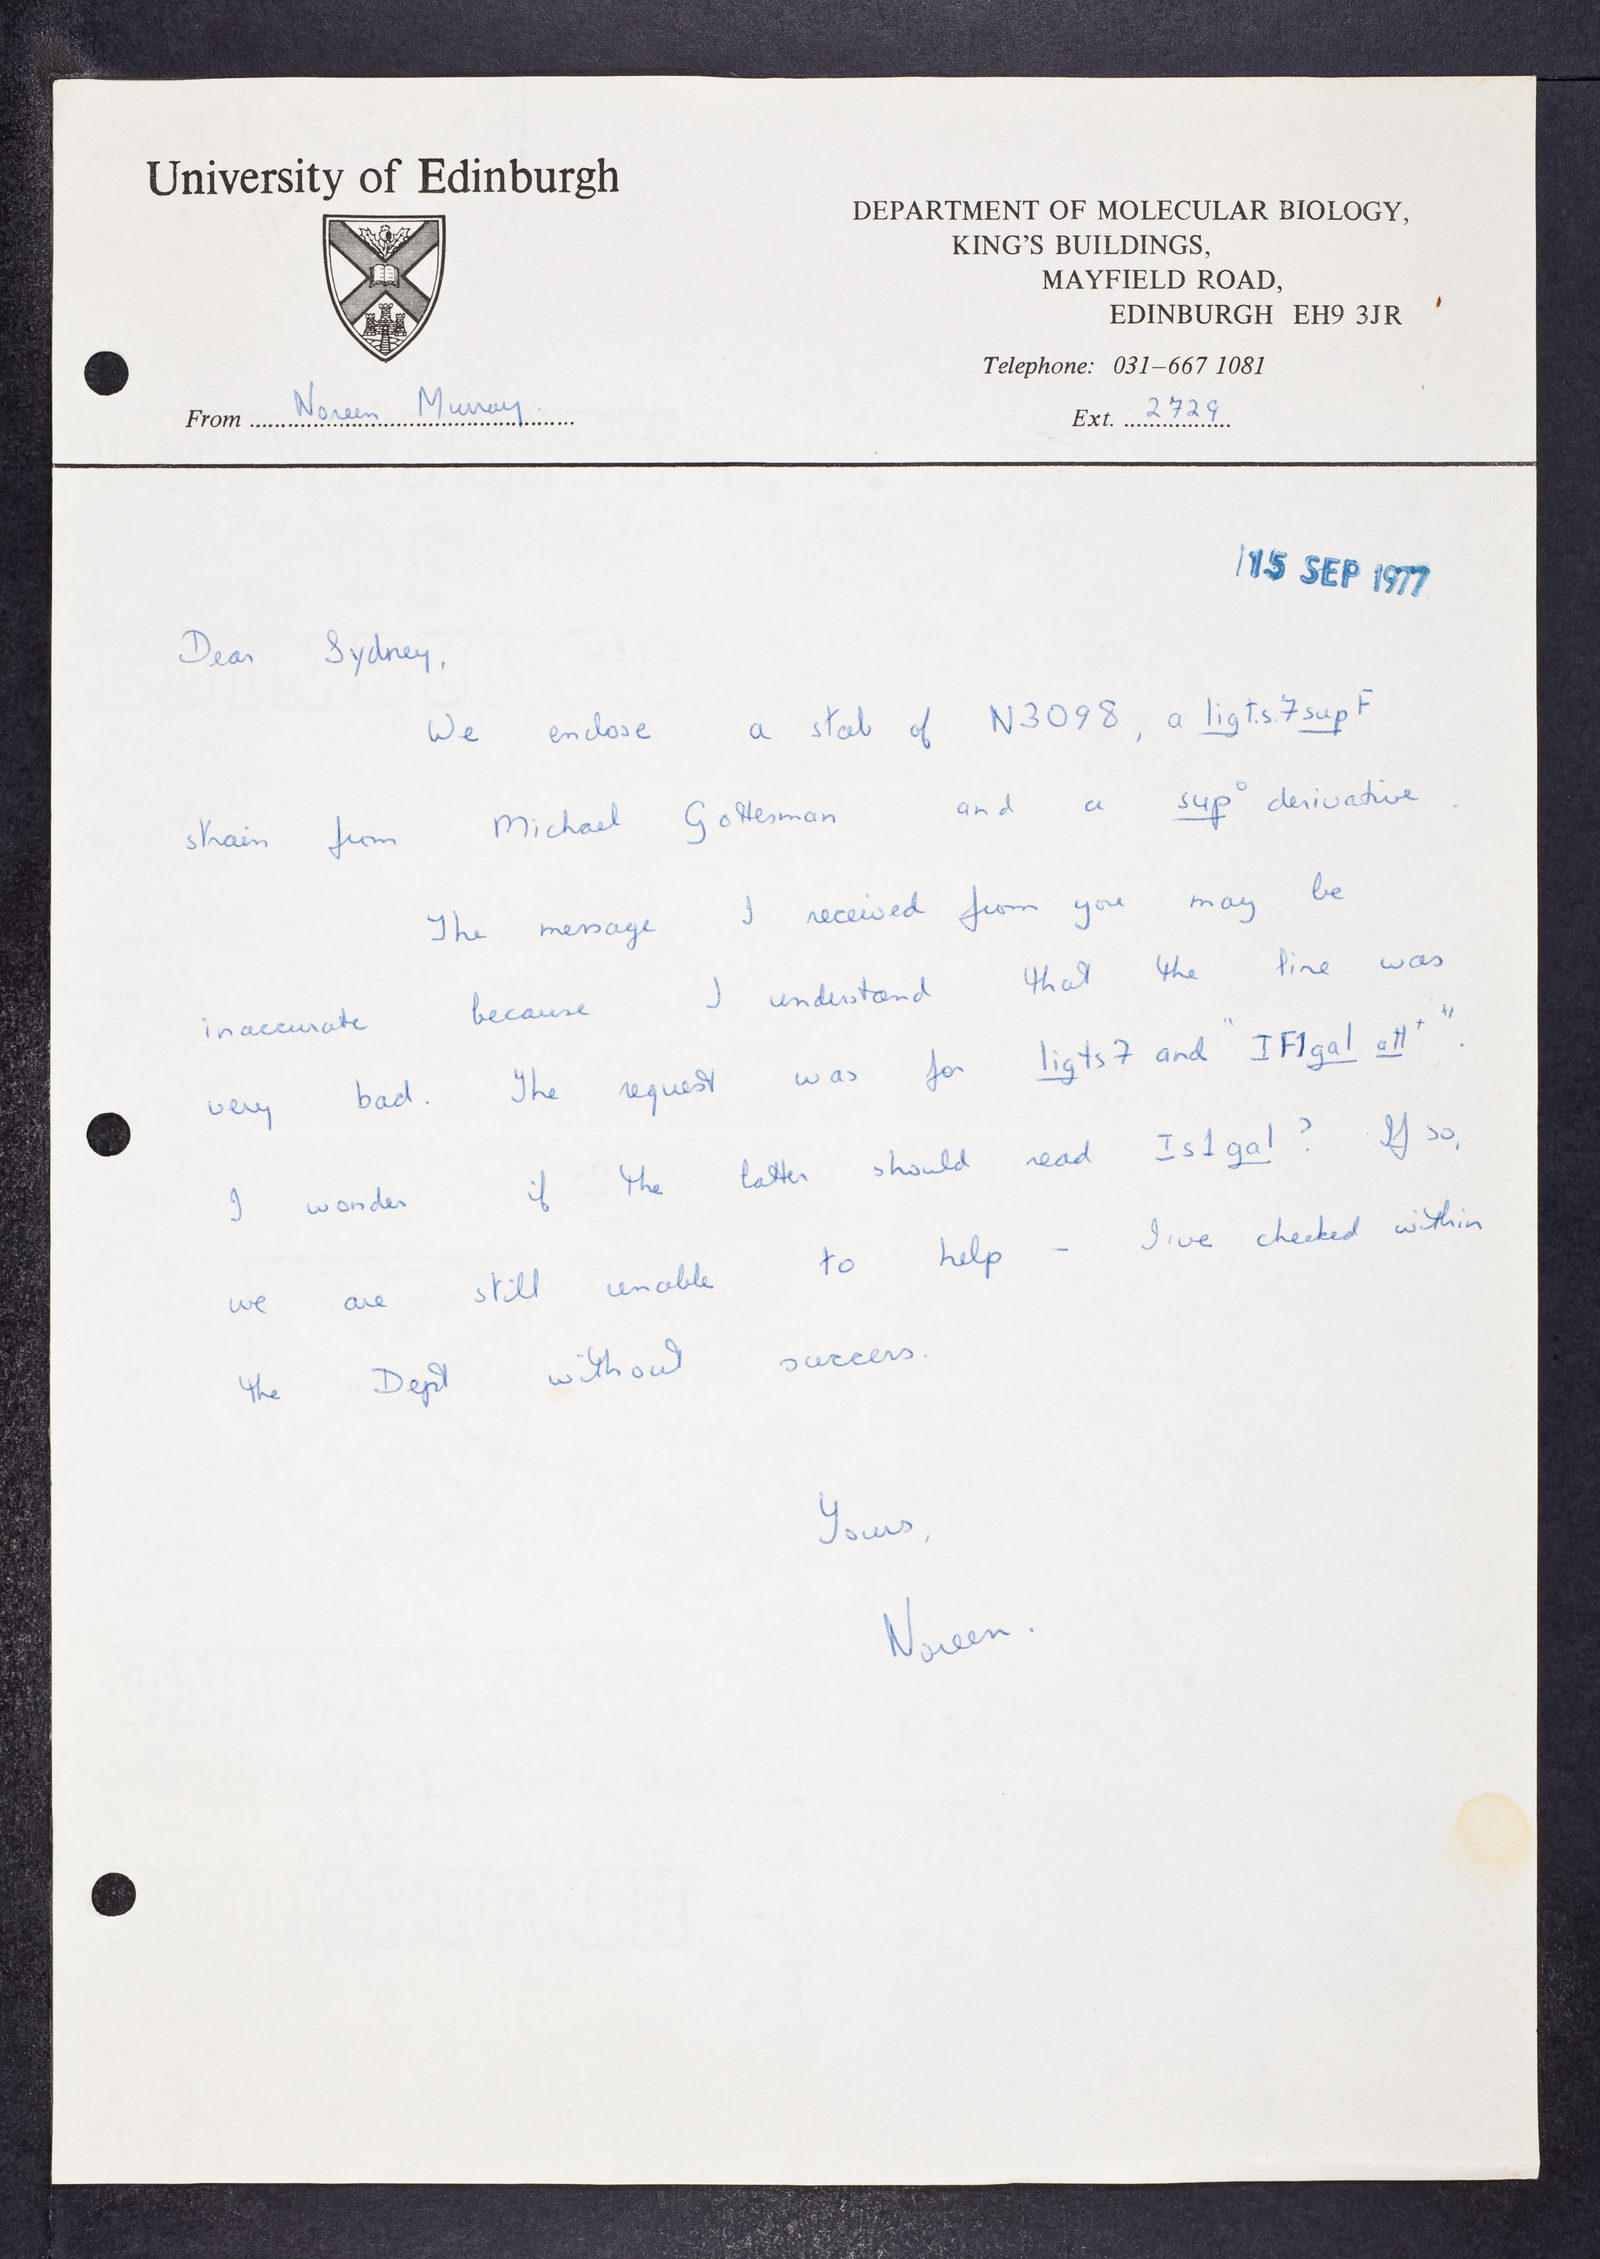 University of Edinburgh
DEPARTMENT OF MOLECULAR BIOLOGY,
KING'S BUILDINGS,
MAYFIELD ROAD,
EDINBURGH EH9 3JR
Telephone: 031–667 1081
From Noreen Murray.
Ext. 2729
15 SEP 1977
Dear Sydney,
We enclose a stab of N3098, a lig t.s.7 sup F
strain from Michael Gottesman and a sup° derivative.
The message I received from you may be
inaccurate because I understand that the line was
very bad. The request was for lig ts7 and "IF1gal att+".
I wonder if the latter should read Is1 gal? If so,
we are still unable to help – I've checked within
the Dept without success.
Yours,
Noreen.